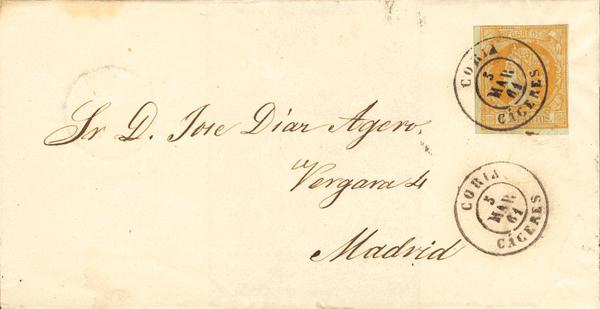 CORREOS
CORIA
5
MAR
61
CÁCERES
Sr. D. Jose Díaz Agero,
Vergara 4
Madrid
CORIA
5
MAR
61
CÁCERES